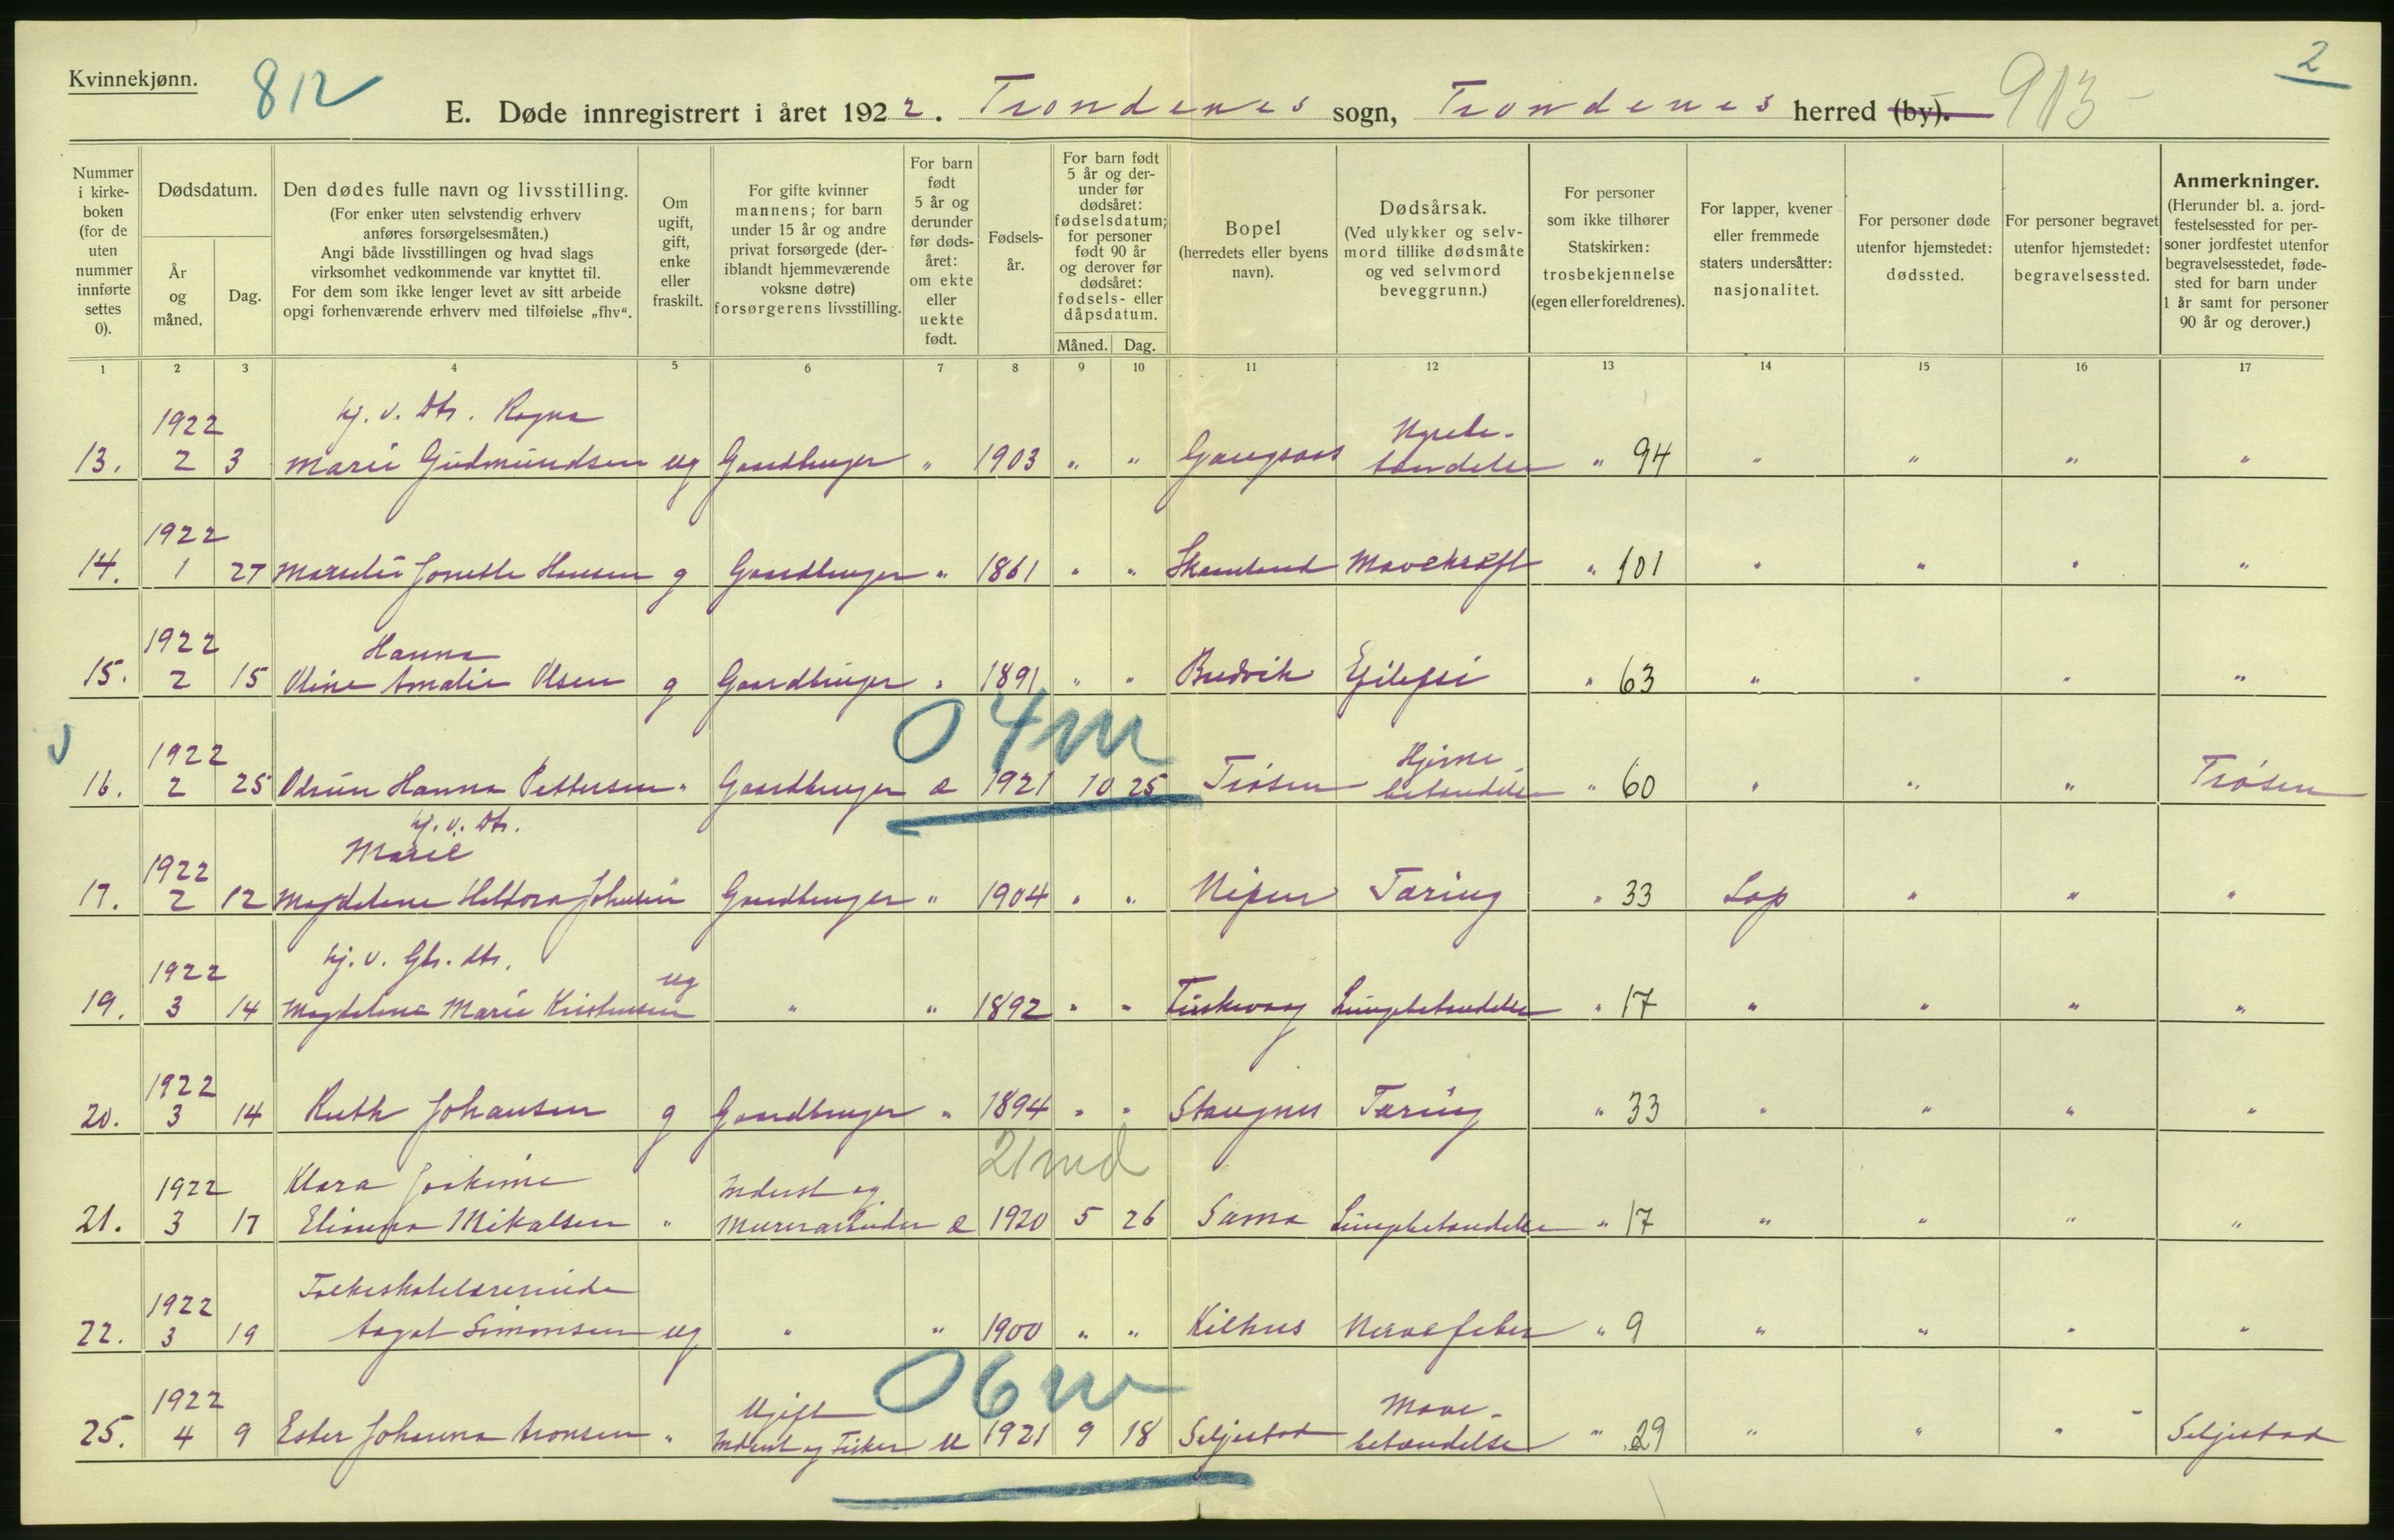 Kvinnekjønn.
812
2
E. Døde innregistrert i året 1922. Trondenes sogn, Trondenes herred (by). 913
Nummer i kirke-boken (for de uten nummer innførte settes 0).
Dødsdatum.
År og måned.
Dag.
Den dødes fulle navn og livsstilling.
(For enker uten selvstendig erhverv anføres forsørgelsesmåten.)
Angi både livsstillingen og hvad slags virksomhet vedkommende var knyttet til.
For dem som ikke lenger levet av sitt arbeide opgi forhenværende erhverv med tilføielse „fhv“.
Om ugift, gift, enke eller fraskilt.
For gifte kvinner mannens; for barn under 15 år og andre privat forsørgede (der-iblandt hjemmeværende voksne døtre) forsørgerens livsstilling.
For barn født 5 år og derunder før døds-året: om ekte eller uekte født.
Fødsels-år.
For barn født 5 år og der-under før dødsåret: fødselsdatum; for personer født 90 år og derover før dødsåret: fødsels- eller dåpsdatum.
Måned. Dag.
Bopel (herredets eller byens navn).
Dødsårsak. (Ved ulykker og selv-mord tillike dødsmåte og ved selvmord beveggrunn.)
For personer som ikke tilhører Statskirken: trosbekjennelse (egen eller foreldrenes).
For lapper, kvener eller fremmede staters undersåtter: nasjonalitet.
For personer døde utenfor hjemstedet: dødssted.
For personer begravet utenfor hjemstedet: begravelsessted.
Anmerkninger. (Herunder bl. a. jord-festelsessted for per-soner jordfestet utenfor begravelsesstedet, føde-sted for barn under 1 år samt for personer 90 år og derover.)
1 2 3 4 5 6 7 8 9 10 11 12 13 14 15 16 17
1922 hj. v. Dtr. Ragna Nyrebe-
13. 2 3 Marie Gudmundsen ug Gaardbruger " 1903 " " Gangsaas tændelse " 94 " " " "
1922
14. 1 27 Jonette Hansen g Gaardbruger " 1861 " " Skamland Mavekræft " 101 " " " "
1922 Hanna
15. 2 15 Oline Amalie Olsen g Gaardbruger " 1891 " " Bredvik Epilepsi " 63 " " " "
04m
1922 Hjerne
16. 2 25 Odrun Hanna Pettersen " Gaardbruger e 1921 10 25 Trøsen betændelse " 60 " " " Trøsen
hj. v. Dtr.
1922 Marie
17. 2 12 Magdelene Heldora " Gaardbruger " 1904 " " Nipen Tæring " 33 Lap " " "
1922 hj. v. Gbr. dtr. ug
19. 3 14 Magdelene Marie Kristensen " " 1892 " " Fiskevaag Lungebetændelse " 17 " " " "
1922
20. 3 14 Ruth Johansen g Gaardbruger " 1894 " " Stangnes Tæring " 33 " " " "
21md
1922 Klara Joakime Inderst og
21. 3 17 Elinora Mikalsen " Murerarbeider e 1920 5 26 Sama Lungebetændelse " 17 " " " "
1922 Folkeskolelærerinde
22. 3 19 Aagot Simonsen ug " " 1900 " " Kilhus Nervefeber " 9 " " " "
06m
1922 Ugift Mave-
25. 4 9 Ester Johanna Aronsen " Inderst og Fisker u 1921 9 18 Seljestad betændelse " 29 " " " Seljestad